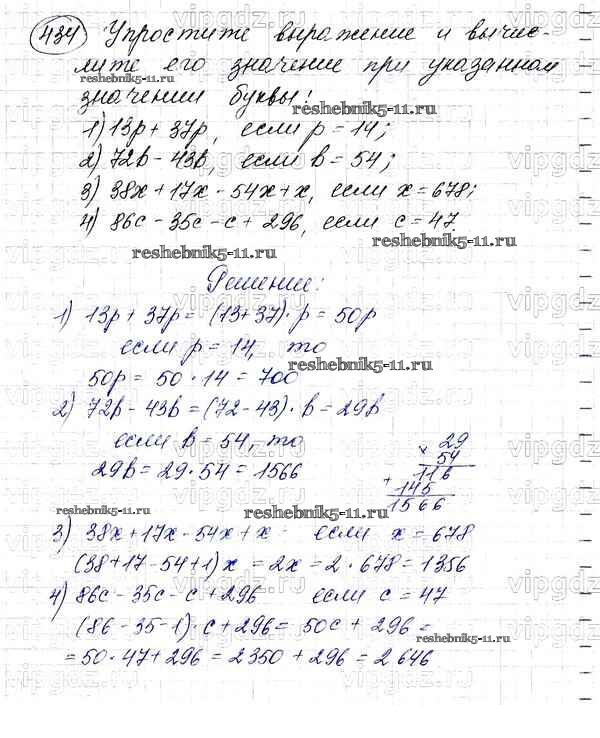 434 Упростите выражение и вычис-
лите его значение при указанном
reshebnik5-11.ru
значении буквы:
1) 13p + 37p, если p = 14;
2) 72b - 43b, если b = 54;
3) 38x + 17x - 54x + x, если x = 678;
4) 86c - 35c - c + 296, если c = 47
reshebnik5-11.ru
reshebnik5-11.ru
Решение:
1) 13p + 37p = (13+37)·p = 50p
если p = 14, то
reshebnik5-11.ru
50p = 50·14 = 700
2) 72b - 43b = (72-43)·b = 29b
если b = 54, то
29b = 29·54 = 1566
× 29
54
+ 116
145
1566
reshebnik5-11.ru
reshebnik5-11.ru
3) 38x+17x-54x+x если x = 678
(38+17-54+1)x = 2x = 2·678 = 1356
4) 86c-35c-c+296 если c = 47
(86-35-1)·c+296 = 50c + 296 =
reshebnik5-11.ru
= 50·47+296 = 2350 + 296 = 2646